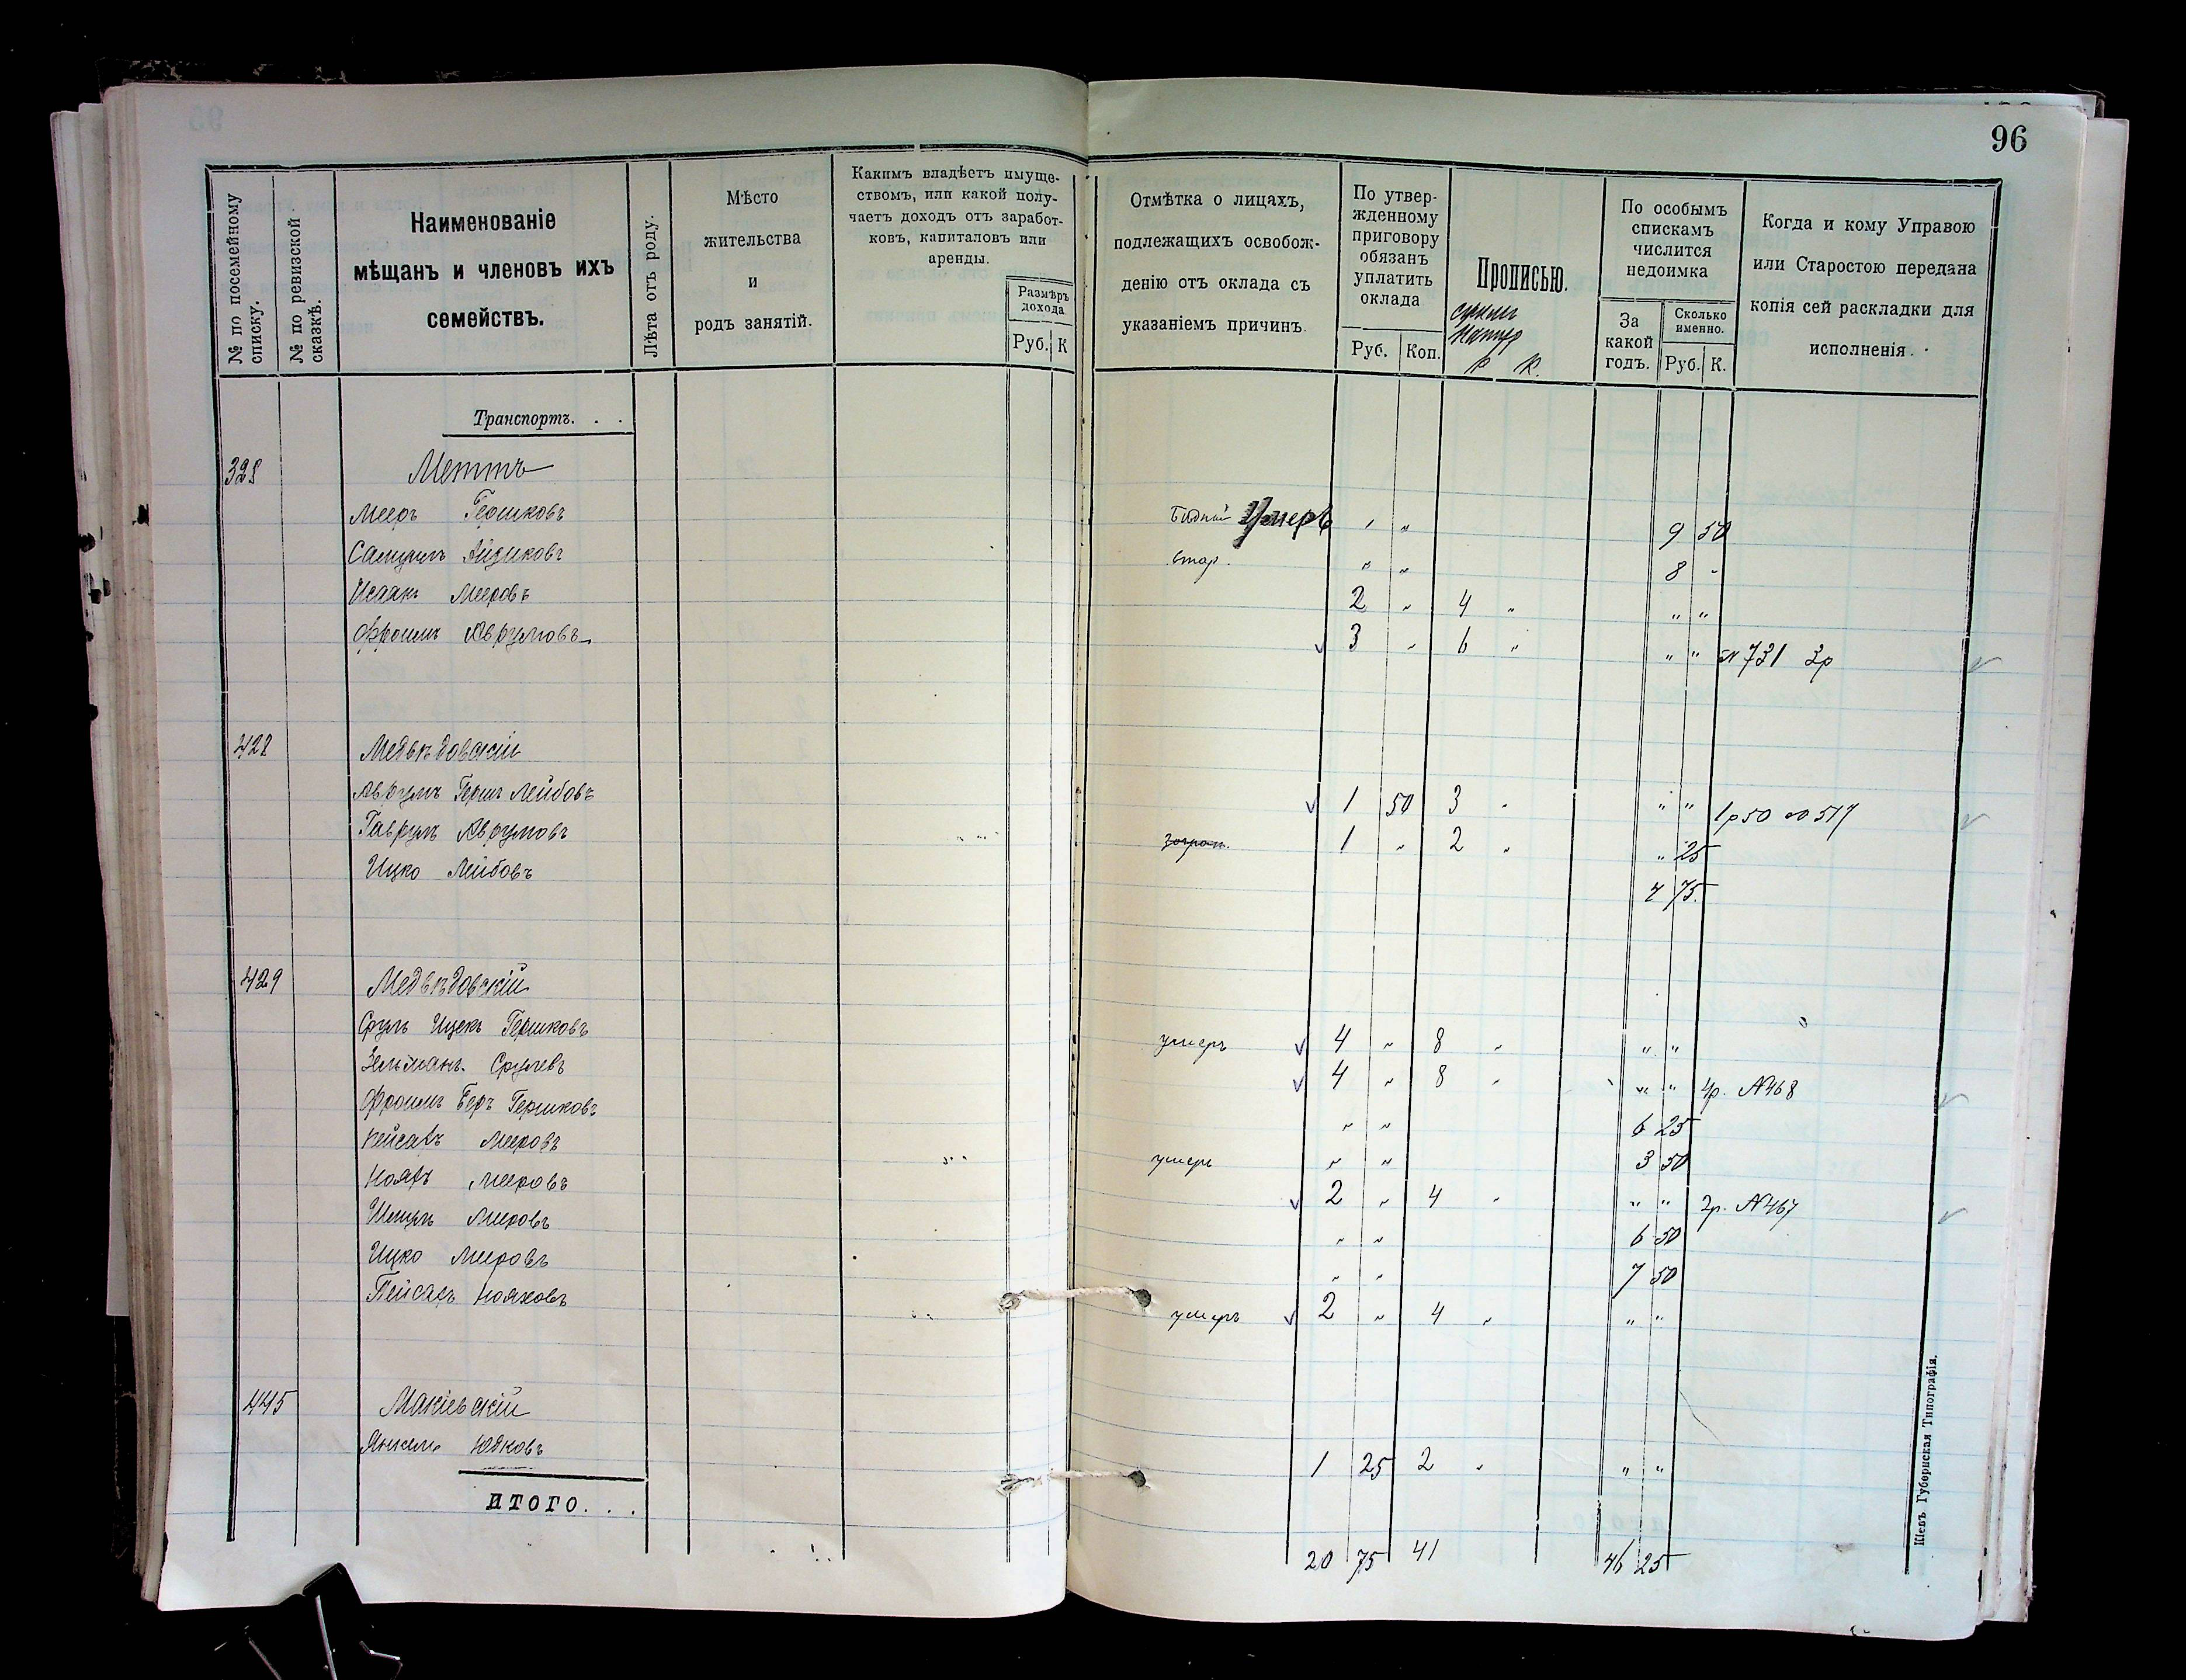 96
№ по посемейному списку.
№ по ревизской сказкѣ.
Наименованіе
мѣщанъ и членовъ ихъ
семействъ.
Лѣта отъ роду.
Мѣсто
жительства
и
родъ занятій.
Какимъ владѣетъ имуще-
ствомъ, или какой полу-
чаетъ доходъ отъ заработ-
ковъ, капиталовъ или
аренды.
Размѣръ
дохода
Руб. К
Отмѣтка о лицахъ,
подлежащихъ освобож-
денію отъ оклада съ
указаніемъ причинъ.
По утвер-
жденному
приговору
обязанъ
уплатить
оклада
Руб. Коп.
Прописью.
р К.
По особымъ
спискамъ
числится
недоимка
За
какой
годъ.
Сколько
именно.
Руб. К.
Когда и кому Управою
или Старостою передана
копія сей раскладки для
исполненія.
Транспортъ. . .
328 Меттъ
Мееръ Гершковъ бѣдный умеръ " " 9 50
Самуилъ Айзиковъ стар. " " 8 "
Исаакъ Мееровъ 2 " 4 " " "
Фроимъ Аврумовъ 3 " 6 " " " № 731 3р
428 Медвѣдовскій
Аврумъ Герш Лейбовъ 1 50 3 " " " 1р 50 № 517
Гаврумъ Аврумовъ 1 " 2 " " 25
Ицко Лейбовъ 4 75
429 Медвѣдовскій
Сруль Ицекъ Гершковъ умеръ 4 " 8 " " "
Зельманъ Срулевъ 4 " 8 " " " 4р. № 468
Фроимъ Беръ Гершковъ " " 6 25
Пейсахъ Мееровъ умеръ " " 3 50
Нояхъ Мееровъ 2 " 4 " " " 2р. № 467
Шмуль Мееровъ " " 6 50
Ицко Мееровъ " " 7 50
Пейсахъ Нояховъ умеръ 2 " 4 " " "
445 Макіевскій
Янкель Юдковъ 1 25 2 " " "
ИТОГО. . .
20 75 41 46 25
Кіевъ Губернская Типографія.